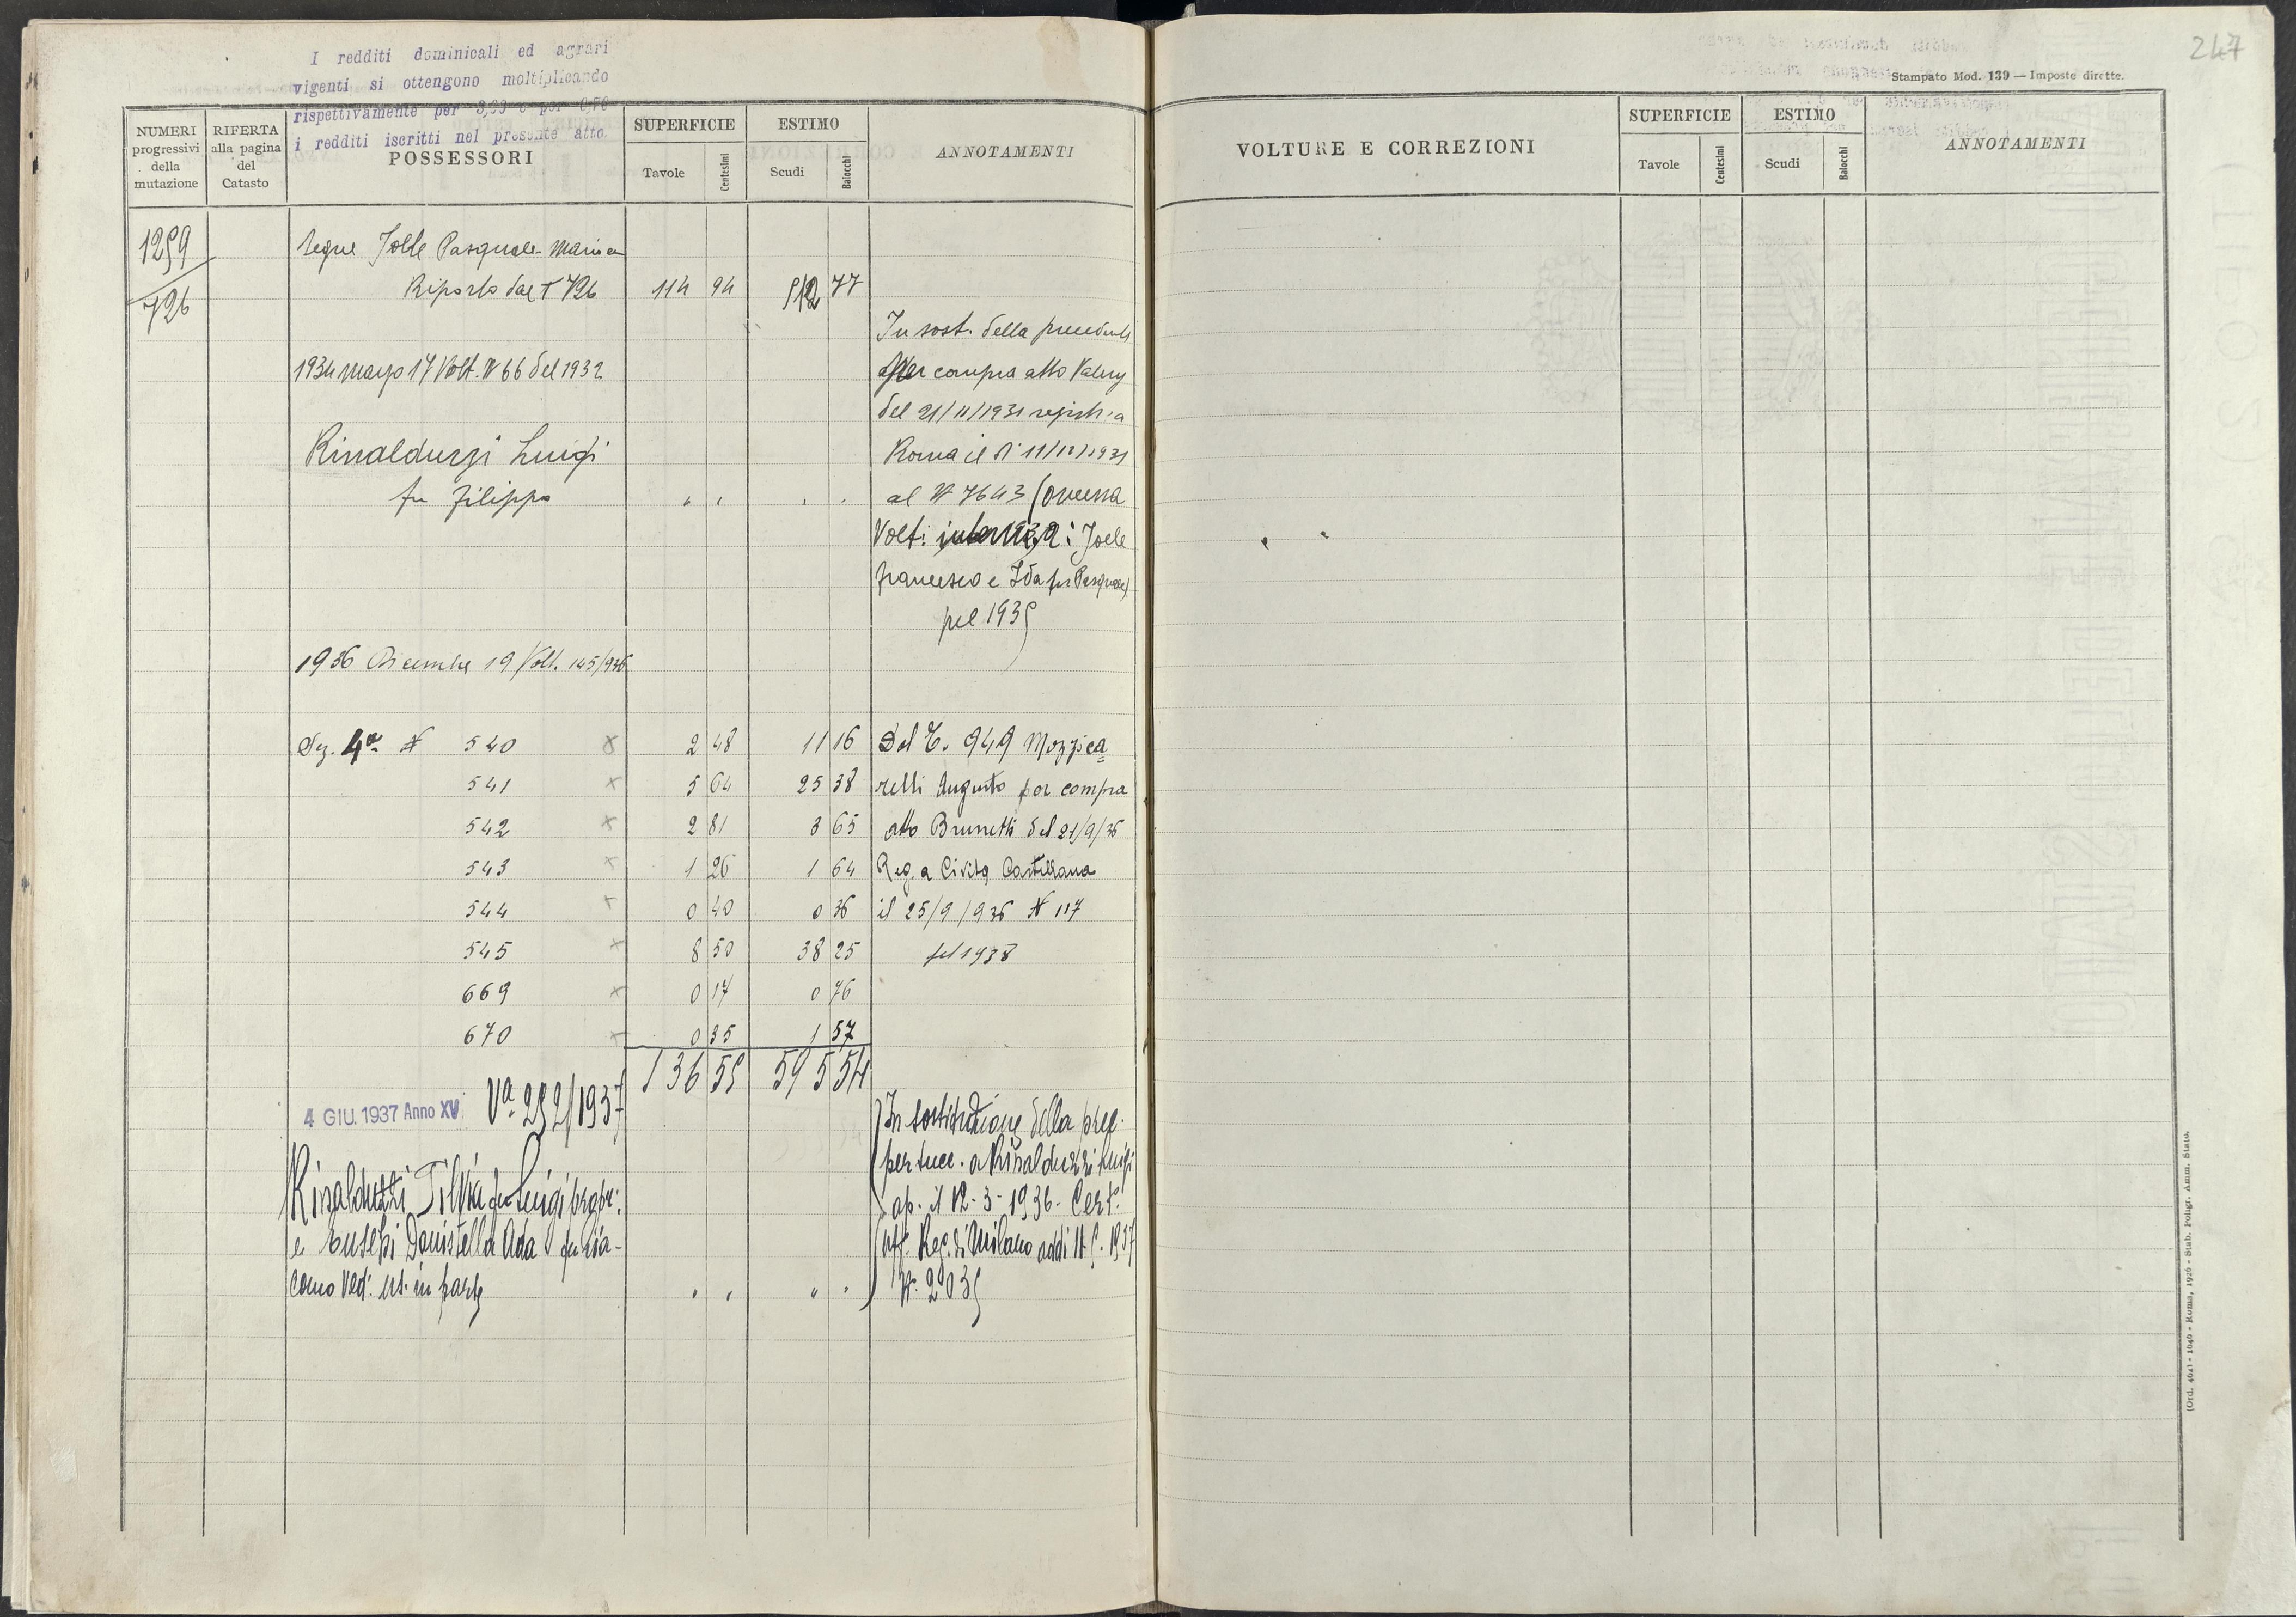 I redditi dominicali ed agrari
vigenti si ottengono moltiplicando
rispettivamente per 3,33 e per 0,70
i redditi iscritti nel presente atto.
NUMERI progressivi della mutazione
RIFERTA alla pagina del Catasto
POSSESSORI
SUPERFICIE
Tavole Centesimi
ESTIMO
Scudi Baiocchi
ANNOTAMENTI
1259
726
Segue Jolle Pasquale Maria
Riporto dal T 726 114 94 512 77
In sost. della precedente
1934 marzo 17 Volt. N 66 del 1932
per compra atto Valery
del 21/11/1931 registr. a
Rinalduzzi Luigi
Roma il dì 11/12/1931
fu Filippo " " " "
al N 7643 (omessa
Volt: 1932: Joele
Francesco e Ida fu Pasquale)
pel 1935
1936 Dicembre 19 Volt. 145/936
Sez. 4a N 540 x 2 48 11 16 Dal T. 949 Mozzica=
541 x 5 64 25 38 relli Augusto per compra
542 x 2 81 3 65 atto Brunetti del 21/9/36
543 x 1 26 1 64 Reg. a Civita Castellana
544 x 0 40 0 36 il 25/9/936 N 117
545 x 8 50 38 25 pel 1938
669 x 0 17 0 76
670 x 0 35 1 57
136 55 595 54
4 GIU. 1937 Anno XV. Va. 252/1937
In sostituzione della prec.
per succ. a Rinalduzzi Luigi
Rinalduzzi Silvia fu Luigi propr:
ap. il 12-3-1936. Cert.
e Eusebi Donistella Ada fu Gia-
Uff. Reg. di Milano addì 11.5.1937
como ved: us. in parte " " " "
N. 2035
247
Stampato Mod. 139 — Imposte dirette.
VOLTURE E CORREZIONI
SUPERFICIE
Tavole Centesimi
ESTIMO
Scudi Baiocchi
ANNOTAMENTI
" "